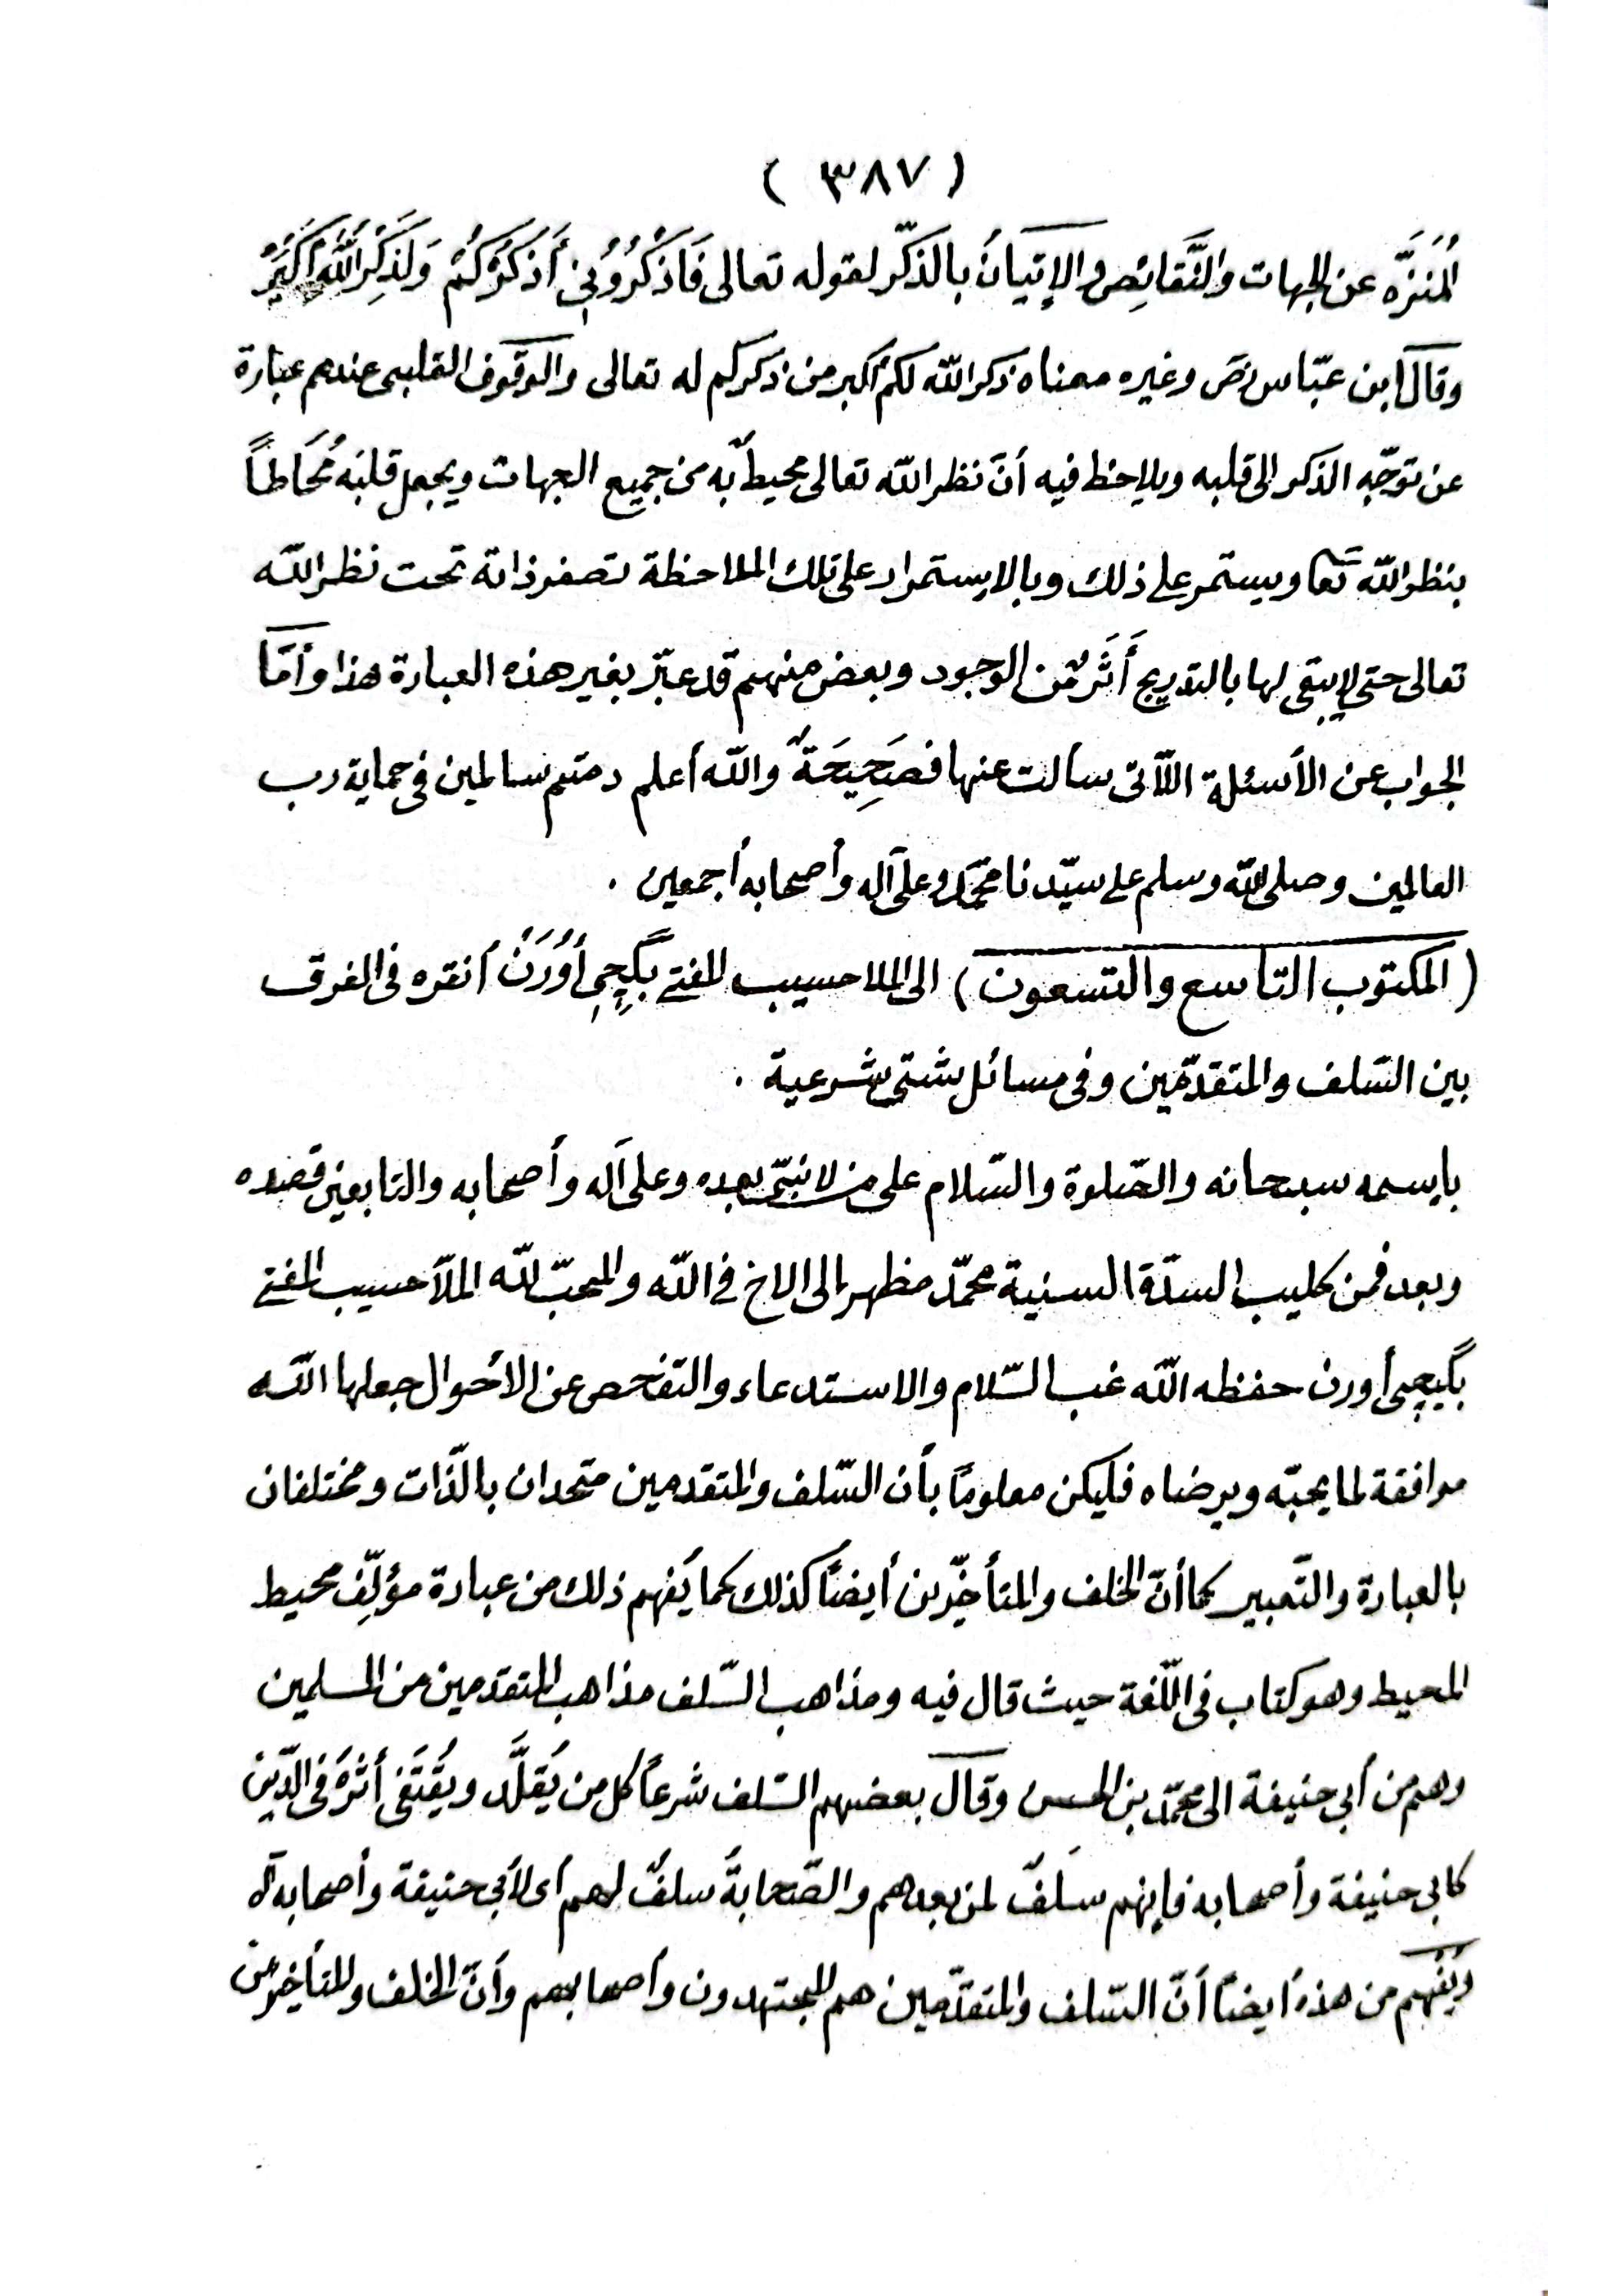 ( ٣٨٧ )
المُنَزَّه عن الجهات والنَّقائِص والإتيانُ بالذّكر لقوله تعالى فَاذْكُرُونِي أَذْكُرْكُمْ وَلَذِكْرُ اللهِ أَكْبَرُ
وقال ابن عبّاس رض وغيره معناه ذكر الله لكم أكبر من ذكركم له تعالى والوقوف القلبى عندهم عبارة
عن توجّه الذكر الى قلبه ويلاحظ فيه أنّ نظر الله تعالى محيطٌ به من جميع الجهات ويجعل قلبَه مُحَاطاً
بنظر الله تعا ويستمر على ذلك وبالاستمرار على تلك الملاحظة تصغر ذاته تحت نظر الله
تعالى حتى لا يبقى لها بالتدريج أَثَرٌ من الوجود وبعض منهم قد عبّر بغير هذه العبارة هذا وأمّا
الجواب عن الأسئلة اللّاتى سألت عنها فصَحِيحَةٌ والله أعلم دمتم سالمين فى حماية رب
العالمين وصلى الله وسلم على سيّدنا محمّد وعلى آله وأصحابه أجمعين .
( المكتوب التاسع والتسعون ) الى الملا حسيب المفتى بِگِجِى أُورَنْ أنقره فى الفرق
بين السّلف والمتقدّمين وفى مسائل شتى شرعية .
بإسمه سبحانه والصّلوة والسّلام على من لا نبىّ بعده وعلى آله وأصحابه والتابعين قصده
وبعد فمن كليب السدّة السنية محمّد مظهر إلى الاخ فى الله والمحبّ لله الملّا حسيب المفتى
بگيجى أورن حفظه الله غب السّلام والاستدعاء والتفحص عن الأحوال جعلها الله
موافقة لما يحبّه ويرضاه فليكن معلوماً بأن السّلف والمتقدمين متحدان بالذّات ومختلفان
بالعبارة والتّعبير كما أنّ الخلف والمتأخّرين أيضاً كذلك كما يُفهم ذلك من عبارة مؤلّف محيط
المحيط وهو كتاب فى اللّغة حيث قال فيه ومذاهب السّلف مذاهب المتقدمين من المسلمين
وهم من أبى حنيفة الى محمّد بن الحسن وقال بعضهم السّلف شرعاً كل من يُقلَّد ويُقْتَفَى أثرُه فى الدّين
كابى حنيفة وأصحابه فإنهم سَلَفٌ لمن بعدهم والصّحابةُ سلفٌ لهم أى لأبى حنيفة وأصحابه
ويُفهم من هذه أيضاً أنّ السّلف والمتقدّمين هم المجتهدون وأصحابهم وأنّ الخلف والمتأخرين